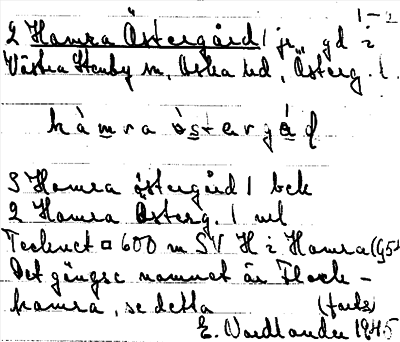 1-2
2 Hamra Östergård / jr, gd i
Västra Stenby sn, Aska hd, Österg. l.
hàmra ò̱stergá̱ḍ
3 Hamra östergård / bek
2 Hamra Österg. / ul
Tecknet ¤ 600 m SV H i Hamra (G5
Det gängse namnet är Flock-
hamra, se detta (forts)
E. Nordlander 1945